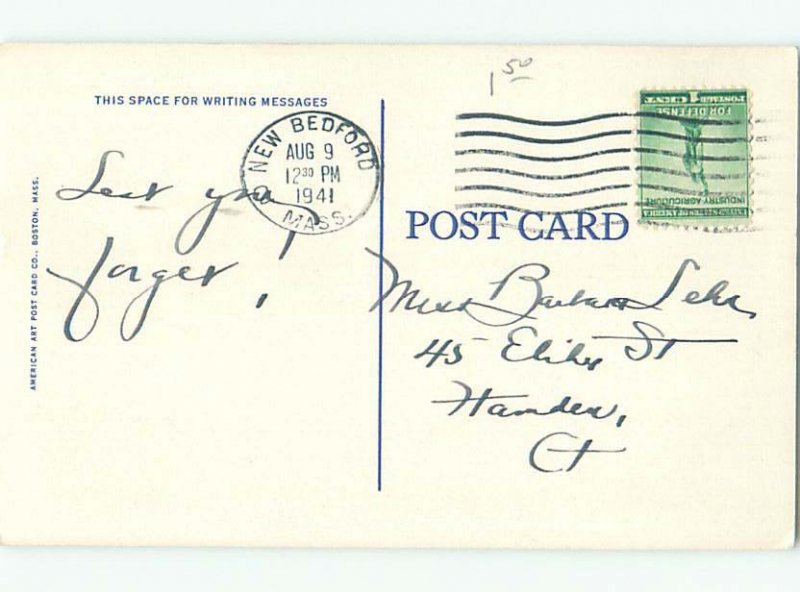 1 50
THIS SPACE FOR WRITING MESSAGES
NEW BEDFORD
AUG 9
12 30 PM
1941
MASS.
POSTAGE 1 CENT
FOR DEFENSE
INDUSTRY AGRICULTURE
UNITED STATES OF AMERICA
Lest you
forget!
POST CARD
Miss Barbara
45 St
Hamden,
Ct
AMERICAN ART POST CARD CO., BOSTON, MASS.